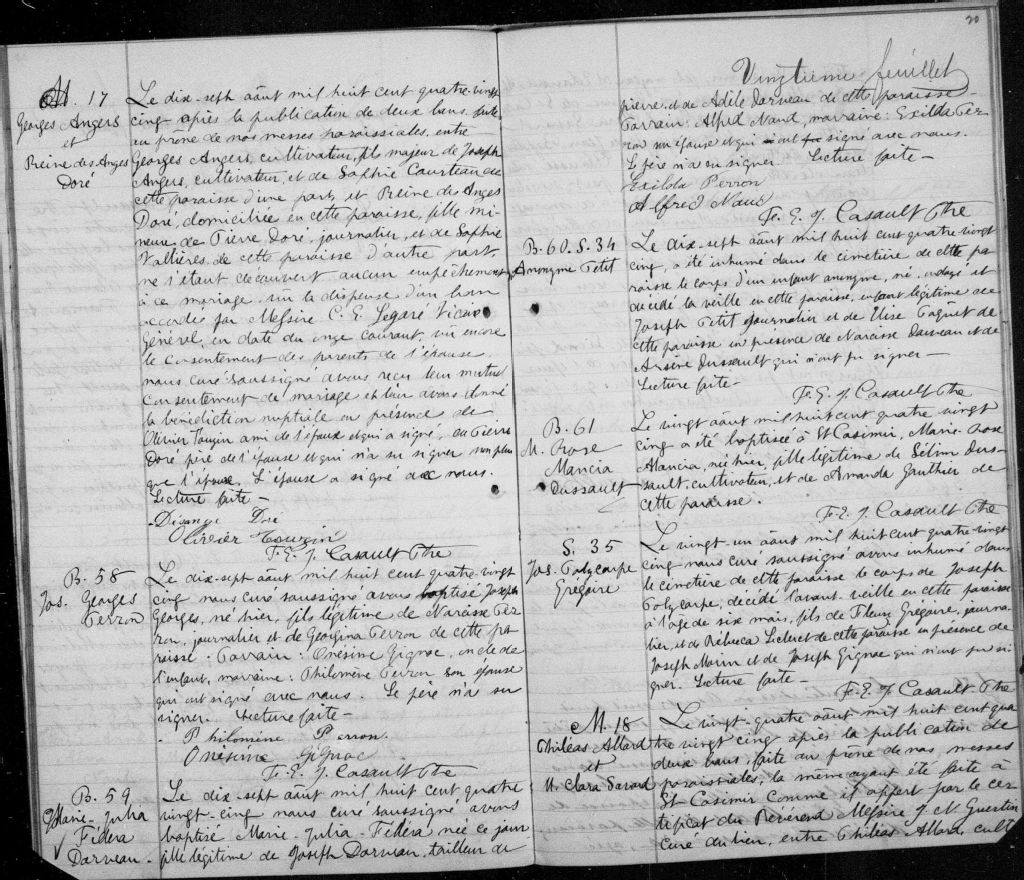 M. 17
Georges Angers
et
Reine des Anges
Doré
Le dix-sept août mil huit cent quatre-vingt
cinq après la publication de deux bans, faite
au prône de nos messes paroissiales, entre
Georges Angers, cultivateur, fils majeur de Joseph
Angers, cultivateur, et de Sophie Courteau de
cette paroisse d'une part, et Reine des Anges
Doré, domiciliée en cette paroisse, fille mi-
neure de Pierre Doré, journalier, et de Sophie
Vallières de cette paroisse d'autre part,
ne s'étant découvert aucun empêchement
à ce mariage, vu la dispense d'un ban
accordée par Messire C. E. Légaré Vicaire
Général, en date du onze courant, vu encore
le consentement des parents de l'épouse,
nous curé soussigné avons reçu leur mutuel
consentement de mariage et leur avons donné
la bénédiction nuptiale en présence de
Olivier ami de l'époux et qui a signé, de Pierre
Doré père de l'épouse et qui n'a su signer non plus
que l'époux. L'épouse a signé avec nous.
Lecture faite -
Désange Doré
Olivier
F. E. J. Casault Ptre
B. 58
Jos. Georges
Perron
Le dix-sept août mil huit cent quatre-vingt
cinq nous curé soussigné avons baptisé Joseph
Georges, né hier, fils légitime de Narcisse Per-
ron, journalier et de Georgina Perron de cette pa-
roisse. Parrain: Onésime Gignac, oncle de
l'enfant, marraine: Philomène Perron son épouse
qui ont signé avec nous. Le père n'a su
signer. Lecture faite -
Philomène Perron
Onésime Gignac
F. E. J. Casault Ptre
B. 59
Marie-Julia
Fédéra
Darveau
Le dix-sept août mil huit cent quatre
vingt-cinq nous curé soussigné avons
baptisé Marie-Julia-Fédéra née ce jour
fille légitime de Joseph Darveau, tailleur de
20
Vingtième feuillet
pierre, et de Adèle Darveau de cette paroisse -
Parrain: Alfred Naud, marraine: Exilda Per-
ron son épouse et qui ont signé avec nous.
Le père n'a su signer Lecture faite -
Exilda Perron
Alfred Naud
F. E. J. Casault Ptre
B. 60. S. 34
Anonyme Petit
Le dix-sept août mil huit cent quatre vingt
cinq, a été inhumé dans le cimetière de cette pa-
roisse le corps d'un enfant anonyme, né, ondoyé et
décédé la veille en cette paroisse, enfant légitime de
Joseph Petit journalier et de Elise Paquet de
cette paroisse en présence de Narcisse Darveau et de
Arsène Dussault qui n'ont pu signer -
Lecture faite -
F. E. J. Casault Ptre
B. 61
M. Rose
Mancia
Dussault
Le vingt août mil huit cent quatre vingt
cinq a été baptisée à St Casimir, Marie-Rose
Mancia, née hier, fille légitime de Sélim Dus-
sault, cultivateur, et de Amanda Gauthier de
cette paroisse.
F. E. J. Casault Ptre
S. 35
Jos. Polycarpe
Grégoire
Le vingt-un août mil huit cent quatre-vingt
cinq nous curé soussigné avons inhumé dans
le cimetière de cette paroisse le corps de Joseph
Polycarpe, décédé l'avant veille en cette paroisse
à l'âge de six mois, fils de Fleury Grégoire, journa-
lier, et de Rébecca Leclerc de cette paroisse en présence de
Joseph Morin et de Joseph Gignac qui n'ont pu si-
gner. Lecture faite -
F. E. J. Casault Ptre
M. 18
Philéas Allard
et
M. Clara Savard
Le vingt-quatre août mil huit cent qua
tre vingt cinq après la publication de
deux bans, faite au prône de nos messes
paroissiales, la même ayant été faite à
St Casimir comme il appert par le cer-
tificat du Révérend Messire J N Guertin
curé du lieu, entre Philéas Allard, cult